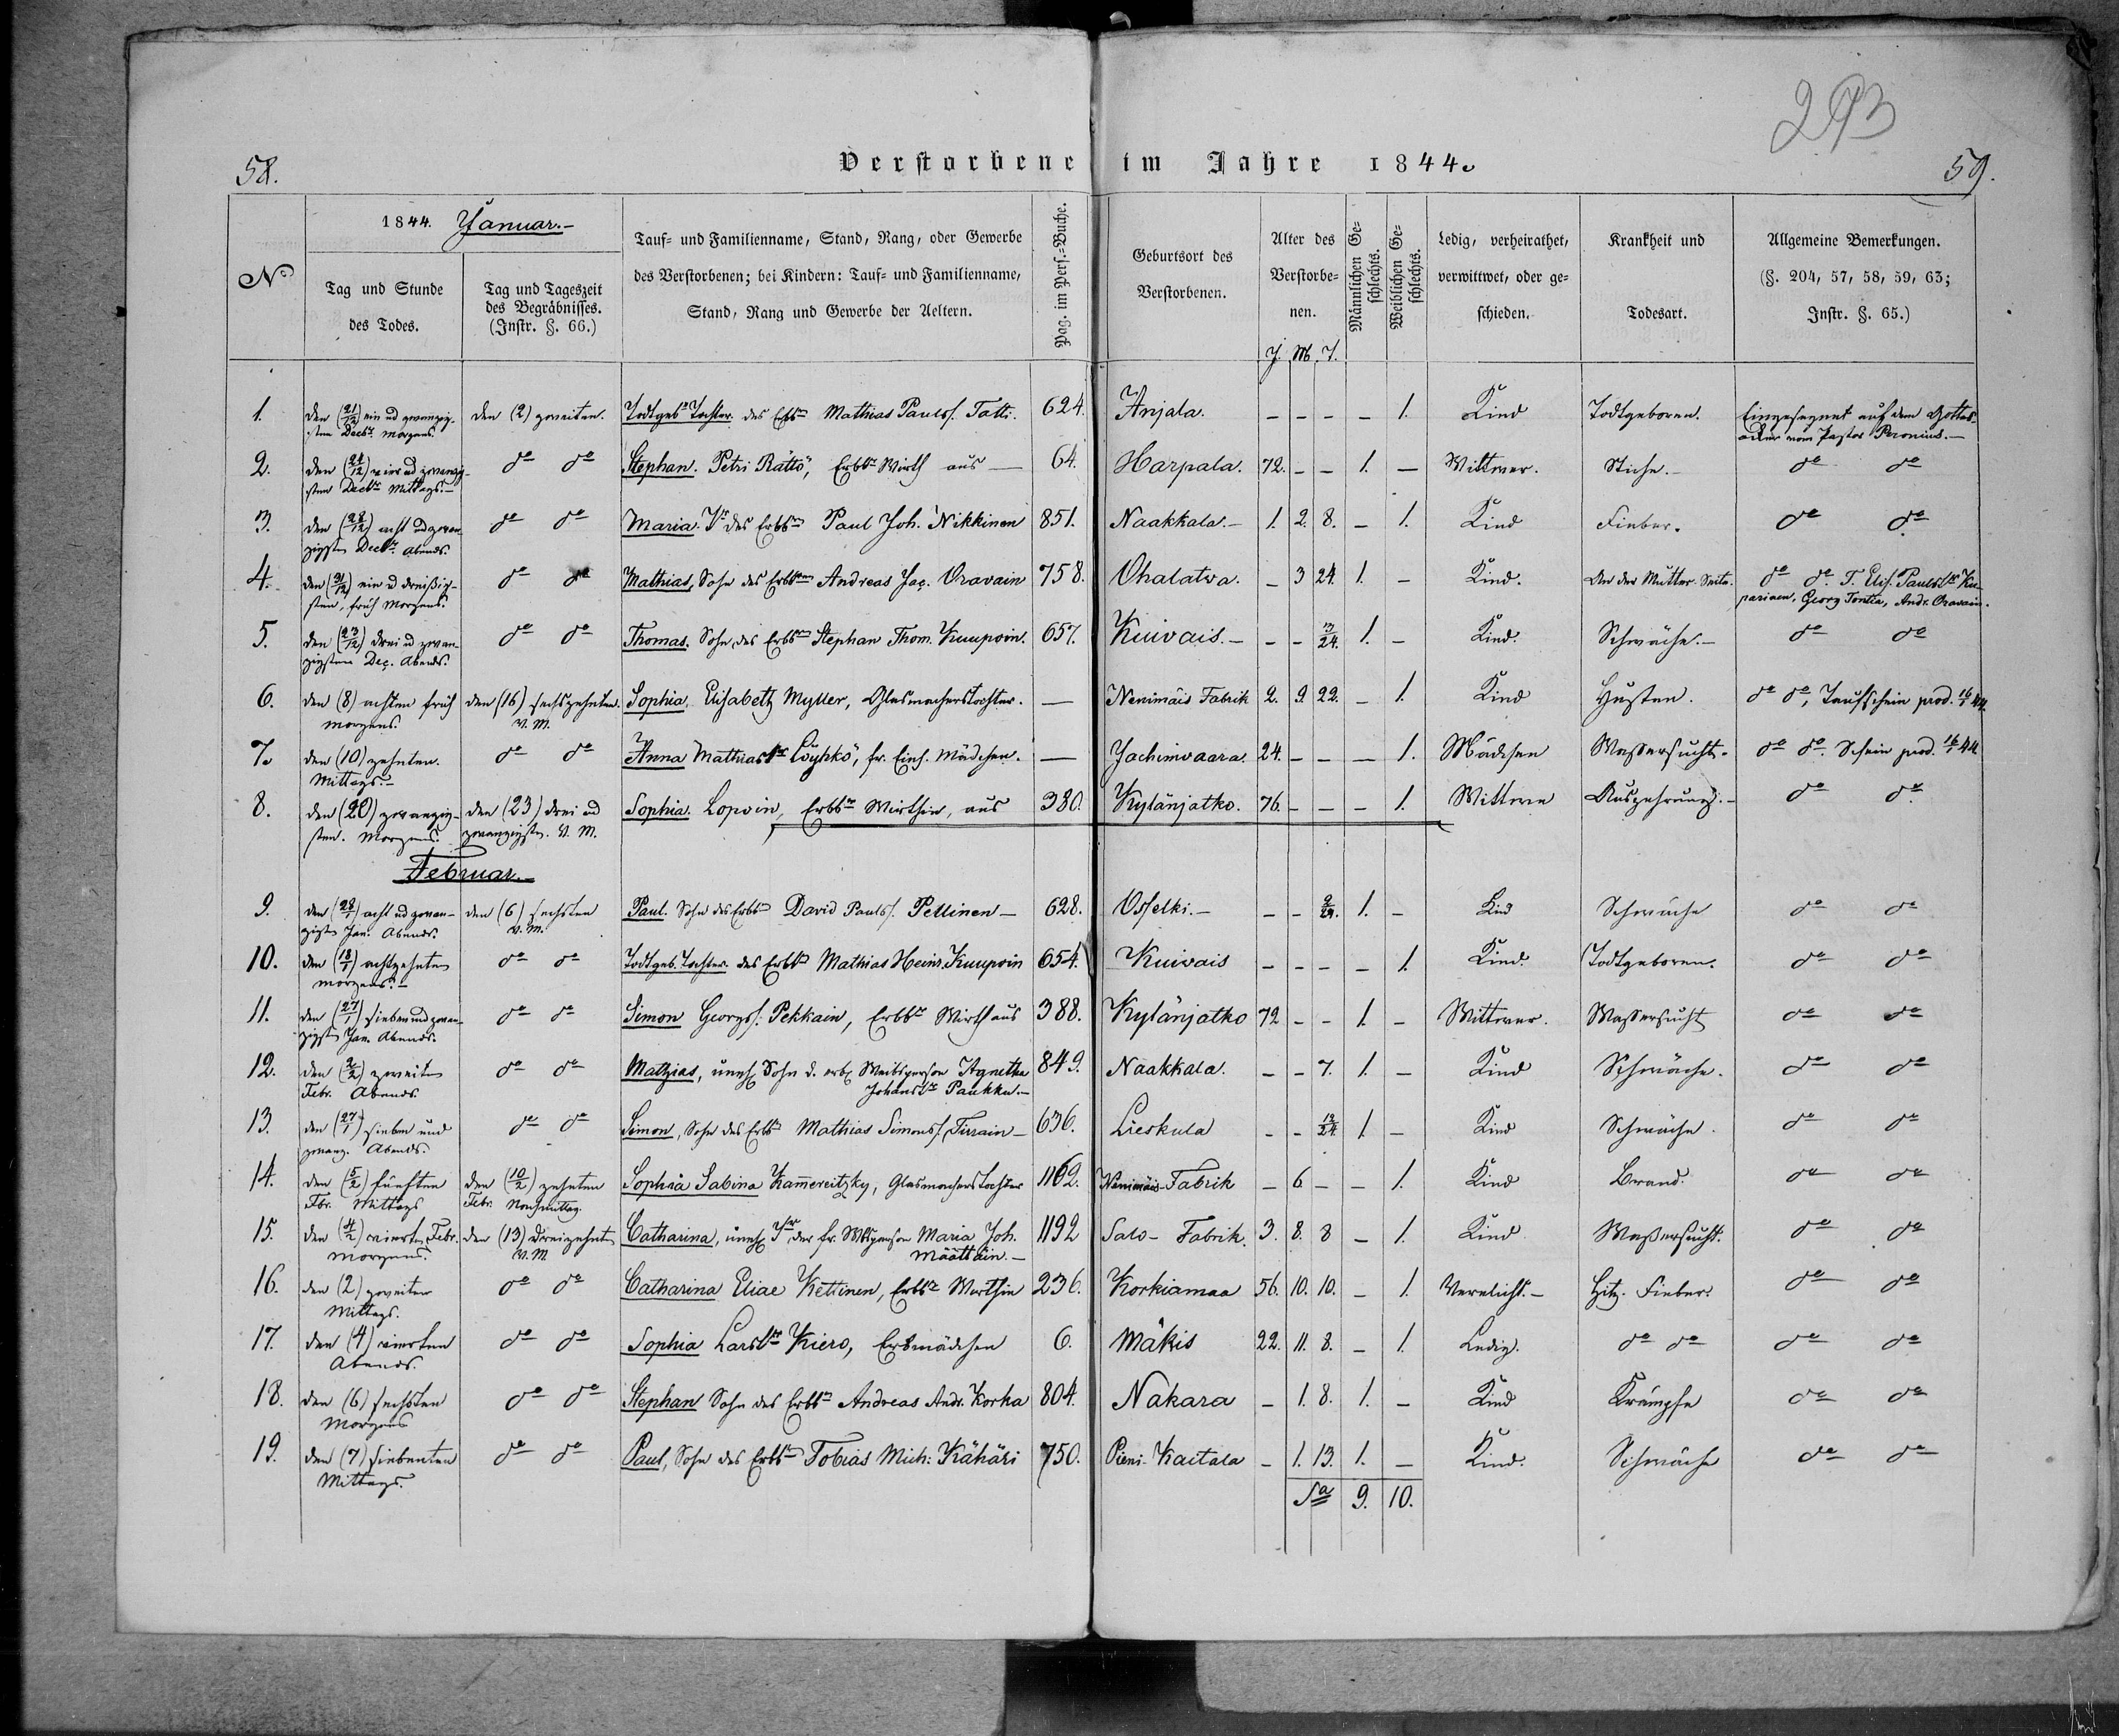 293
58. Verstorbene im Jahre 1844. 59.
No
1844. Januar.
Tag und Stunde des Todes.
Tag und Tageszeit des Begräbnisses. (Instr. §. 66.)
Tauf- und Familienname, Stand, Rang, oder Gewerbe
des Verstorbenen; bei Kindern: Tauf- und Familienname,
Stand, Rang und Gewerbe der Aeltern.
Pag. im Pers.-Buche.
Geburtsort des Verstorbenen.
Alter des Verstorbenen.
J. M. T.
Männlichen Geschlechts.
Weiblichen Geschlechts.
Ledig, verheirathet, verwittwet, oder geschieden.
Krankheit und Todesart.
Allgemeine Bemerkungen.
(§. 204, 57, 58, 59, 63;
Instr. §. 65.)
1. den (21/12) ein ud zwanzigsten Decbr. Morgens. den (2) zweiten. Todtgeb. Tochter des Erbbr Mathias Pauls. Tatti. 624. Anjala. – – – – 1. Kind Todtgeboren. Eingesegnet auf dem Gottesacker vom Pastor Peronius.
2. den (24/12) vier ud zwanzigsten Decbr Mittags. do do Stephan. Petri Rättö, Erbbr Wirth aus — 64. Harpala. 72. – – 1. – Wittwer. Stiche. do do
3. den (28/12) acht ud zwanzigsten Decbr. Abends. do do Maria. Tr des Erbbrn Paul Joh. Nikkinen 851. Naakkala. 1. 2. 8. – 1. Kind Fieber. do do
4. den (31/12) ein ud dreißigsten, früh Morgens. do do Mathias, Sohn des Erbbrn Andreas Jac. Oravain 758. Ohalatva. – 3 24. 1. – Kind. An der Mutter Seite. do do T. Elis. Paulstr Kupariaen, Georg Tontia, Andr. Oravain.
5. den (23/12) drei ud zwanzigsten Dec. Abends. do do Thomas. Sohn des Erbbrn Stephan Thom. Kuupoin. 657. Kuivais. – – 13/24. 1. – Kind. Schwäche. do do
6. den (8) achten früh morgens. den (16) sechszehnten. V. M. Sophia, Elisabeth Myller, Glasmacherstochter. — Nenimäis Fabrik 2. 9 22. – 1. Kind Husten. do do, Taufschein prod. 16/1 44.
7. den (10) zehnten. Mittags. do do Anna Mathiastr Löyhkö, fr. Einh. Mädchen. — Jachimvaara. 24. – – – 1. Mädchen Wassersucht. do do. Schein prod. 16/1 44
8. den (20) zwanzigsten. Morgens. den (23) drei ud zwanzigsten. V. M. Sophia. Lopoin, Erbbr Wirthin, aus 380. Kylänjatko. 76. – – – 1. Wittwe Auszehrung. do do
Februar.
9. den (28/1) acht ud zwanzigst. Jan. Abends. den (6) sechsten V. M. Paul. Sohn des Erbbrn David Pauls. Pellinen — 628. Osselki. – – 2/24. 1. – Kind Schwäche do do
10. den (18/1) achtzehnten morgens. do do Todtgeb. Tochter des Erbbrn Mathias Heinr. Kuupoin 654. Kuivais – – – – 1. Kind. Todtgeboren. do do
11. den (27/1) sieben und zwanzigst. Jan. Abends. do do Simon Georgs. Pekkain, Erbbr Wirth aus 388. Kylänjatko 72 – – 1. – Wittwer. Wassersucht do do
12. den (2/2) zweiten Febr. Abends. do do Mathias, uneh. Sohn d. erb. Weibsperson Agnetha Johanstr Paukku. 849. Naakkala. – – 7. 1. – Kind Schwäche. do do
13. den (27/1) sieben und zwanz. Abends. do do Simon, Sohn des Erbbrn Mathias Simons. Tirrain — 636. Lieskula – – 12/24. 1. – Kind Schwäche. do do
14. den (5/2) fünften Fbr. Mittags den (10/2) zehnten Febr. Nachmittag. Sophia Sabina Kammereitzky, Glasmacherstochter 1162. Nenimäis-Fabrik – 6 – – 1. Kind Brand. do do
15. den (4/2) vierten Febr. morgens. den (13) dreizehnten V. M Catharina, uneh. Tr der fr. Wbsperson Maria Joh. Määttäin. 1192 Salo-Fabrik. 3. 8. 8 – 1. Kind Wassersucht. do do
16. den (2) zweiten Mittags. do do Catharina Eliae Kettinen, Erbbr Wirthin 236. Korkiamaa 56. 10. 10. – 1. Verelicht. Hitz. Fieber. do do
17. den (4) vierten Abends. do do Sophia Larstr Kiero, Erbmädchen 6. Mäkis 22. 11. 8. – 1. Ledig. do do do do
18. den (6) sechsten Morgens do do Stephan Sohn des Erbbrn Andreas Andr. Korka 804. Nakara – 1. 8. 1. – Kind Krämpfe do do
19. den (7) siebenten Mittags. do do Paul, Sohn des Erbbrn Tobias Mich: Kähäri 750. Pieni-Kaitala – 1. 13. 1. – Kind. Schwäche do do
Sa 9. 10.